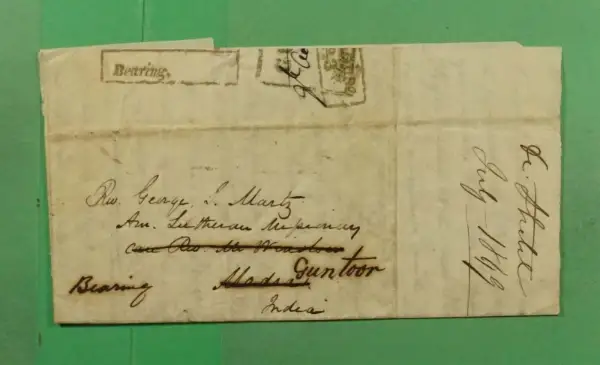 Bearing,
Rev. George J. Martz
Am. Lutheran Missionary
care Rev. Mr Winslow
Madras Guntoor
Bearing
India
July - 1849